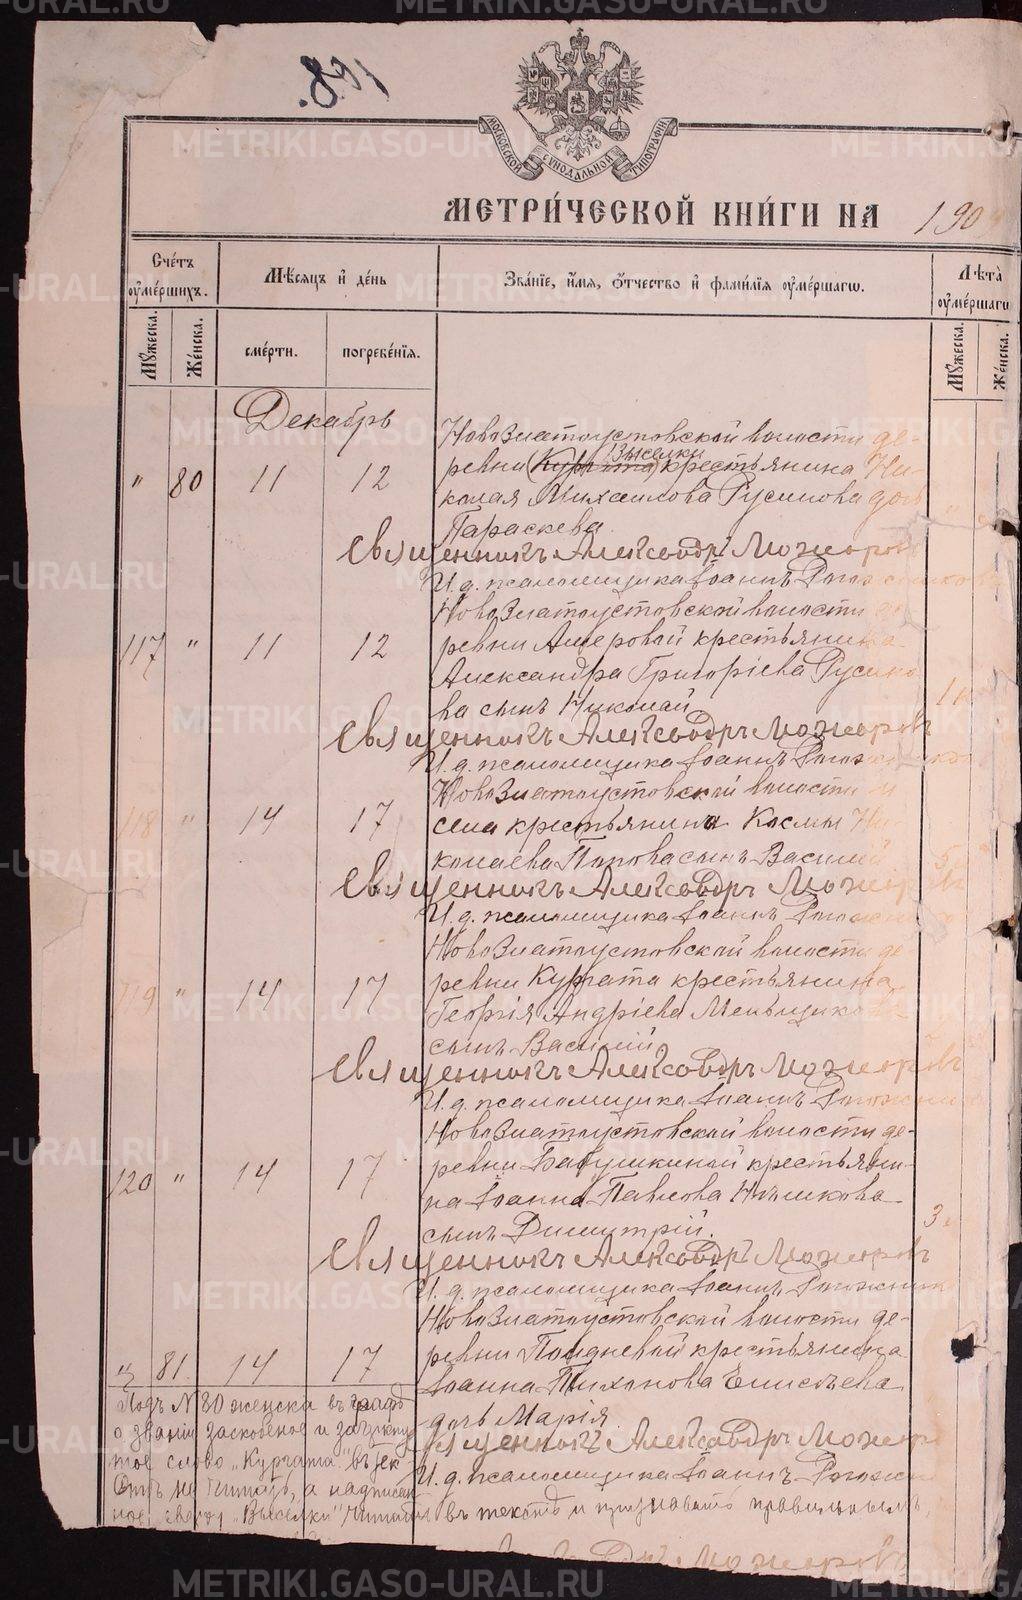 METRIKI.GASO-URAL.RU
891
МОСКОВСКОЙ СѴНОДАЛЬНОЙ ТИПОГРАФІИ
МЕТРИ́ЧЕСКОЙ КНИ́ГИ НА 190
Сче́тъ ᲂуме́ршихъ.
Мѣсяцъ и҆ де́нь
Зва́нїе, и҆́мя, ѻ҆́тчество и҆ фами́лїя ᲂуме́ршагѡ.
Лѣта̀ ᲂуме́ршаго
Мꙋ́жеска.
Же́нска.
сме́рти.
погребе́нїя.
Мꙋ́жеска.
Же́нска.
Декабрь
Новозлатоустовской волости де-
" 80 11 12 ревни (Кургата) Выселки крестьянина Ни-
колая Михаилова Русинова дочь
Параскева.
Священникъ Александръ Можеровъ
И. д. псаломщика Іоаннъ Рогожников
Новозлатоустовской волости де
117 " 11 12 ревни Ащеровой крестьянина
Александра Григоріева Русино
ва сынъ Николай 1
Священникъ Александръ Можеровъ
И. д. псаломщика Іоаннъ
Новозлатоустовской волости и
118 " 14 17 села крестьянина Космы Ни-
колаева Попова сынъ Василій 5
Священникъ Александръ Можеровъ
И. д. псаломщика Іоаннъ Рогожни
Новозлатоустовской волости де
119 " 14 17 ревни Кургата крестьянина
Георгія Андріева Меньщикова
сынъ Василій
Священникъ Александръ Можеровъ
И. д. псаломщика Іоаннъ Рогожни
Новозлатоустовской волости де-
120 " 14 17 ревни Бабушкиной крестьяни-
на Іоанна Павлова
сынъ Димитрій. 3
Священникъ Александръ Можеровъ
И. д. псаломщика Іоаннъ Рогожник
Новозлатоустовской волости де-
" 81. 14 17 ревни Полдневой крестьянина
Іоанна Тихонова Елисѣева
дочь Марія
Священникъ Александръ Можер
И. д. псаломщика Іоаннъ Рогожн
Подъ № 80 женска въ графѣ
о званіи заскобеное и зачеркну
тое слово „Кургата" въ тек
стѣ не читать, а надписан
ное сверху „Выселки" читать въ текстѣ и признавать правильнымъ,
Можеровъ